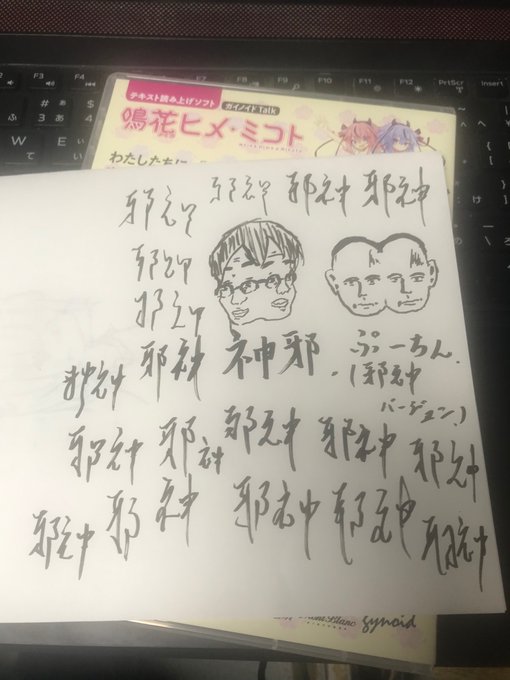 テキスト読み上げソフト
ガイノイドTalk
鳴花ヒメ・ミコト
わたしたちに
邪神 邪神 邪神 邪神
邪神
邪神
邪神 邪神 神邪
ぷーちん
(邪神
バージョン)
邪神 邪神 邪神 邪神 邪神
邪神 邪神 邪神 邪神 邪神
gynoid
F3 F4 F7 F8 F9 F10 F11 F12 PrtScr Insert